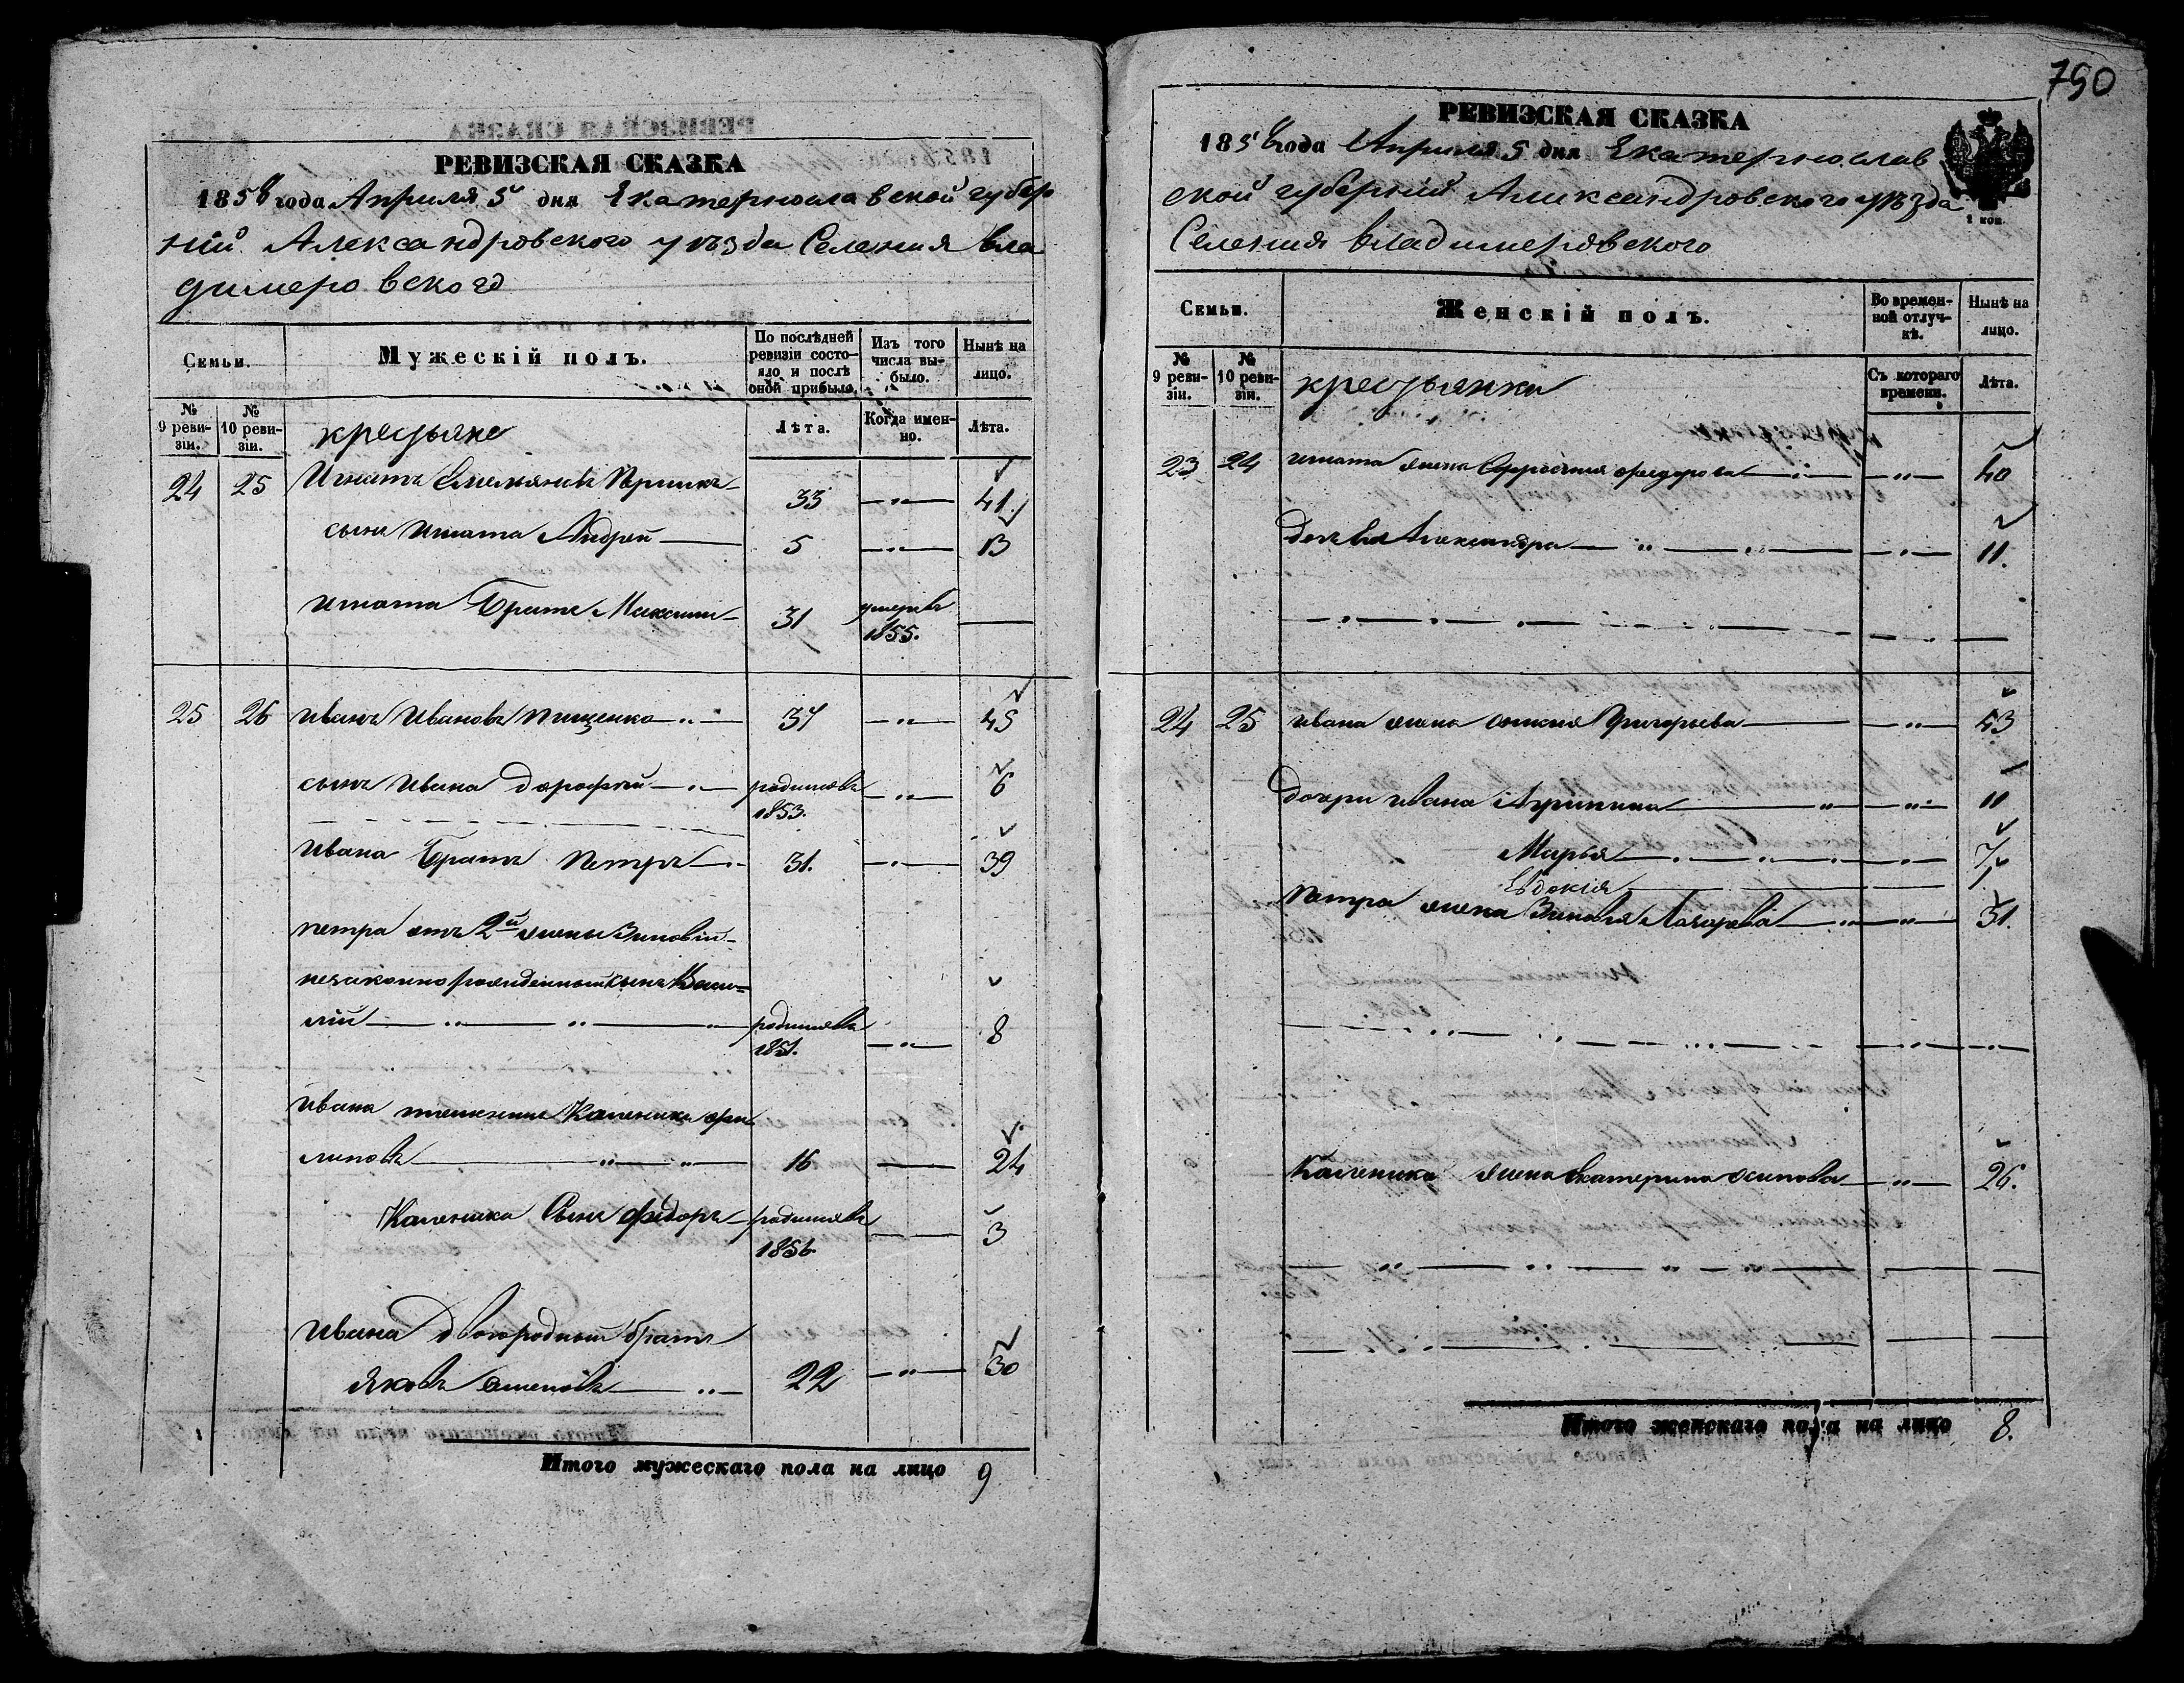 РЕВИЗСКАЯ СКАЗКА
1858 года Апреля 5 дня Екатеринославской губер
ніи Александровского уѣзда Селения Вла
димеровского
Семьи.
Мужескій полъ.
По послѣдней ревизіи состояло и послѣ оной прибыло.
Изъ того числа выбыло.
Нынѣ на лицо.
№ 9 ревизіи.
№ 10 ревизіи.
крестьяне
Лѣта.
Когда именно.
Лѣта.
24 25 Игнатъ Емельяновъ 33 — " — 41
сынъ Игната Андрей — 5 — " — 13
Игната Братъ Максим — 31 умеръ 1855. —
25 26 Иванъ Ивановъ Пищенко — " — 37 — " — 45
сынъ Ивана Дорофей — " — родился 1853. — " — 6
Ивана Братъ Петръ — " 31. — " — 39
Петра отъ 2й жены Зиновіи
незаконно рожденный сынъ Васи=
лій — " — " — " — родился 1851. — " — 8
Ивана племянникъ Каленикъ
— " — " — 16 — 24
Каленика Сынъ Федоръ — родился 1856 — 3
Ивана Двоюродный братъ
Яковъ — " — 22 — " — 30
Итого мужескаго пола на лицо 9
790
РЕВИЗСКАЯ СКАЗКА
1858 года Апреля 5 дня Екатеринослав
ской губерніи Александровского уѣзда
Селения Владимеровского
1 коп.
Семьи.
Женскій полъ.
Во временной отлучкѣ.
Нынѣ на лицо.
№ 9 ревизіи.
№ 10 ревизіи.
крестьянки
Съ котораго времени.
Лѣта.
23 24 Игната жена Федорова — " — — " — 40
дочь Александра — " — " — — " — 11.
24 25 Ивана жена Григорьева — — " — 43
Дочери Ивана — " — " — 11
Марья — " — " — " — 7
Евдокія — — 1
Петра жена Зиновія — " — " — 31.
Каленика жена Екатерина Осипова — " — 26.
Итого женскаго пола на лицо 8.